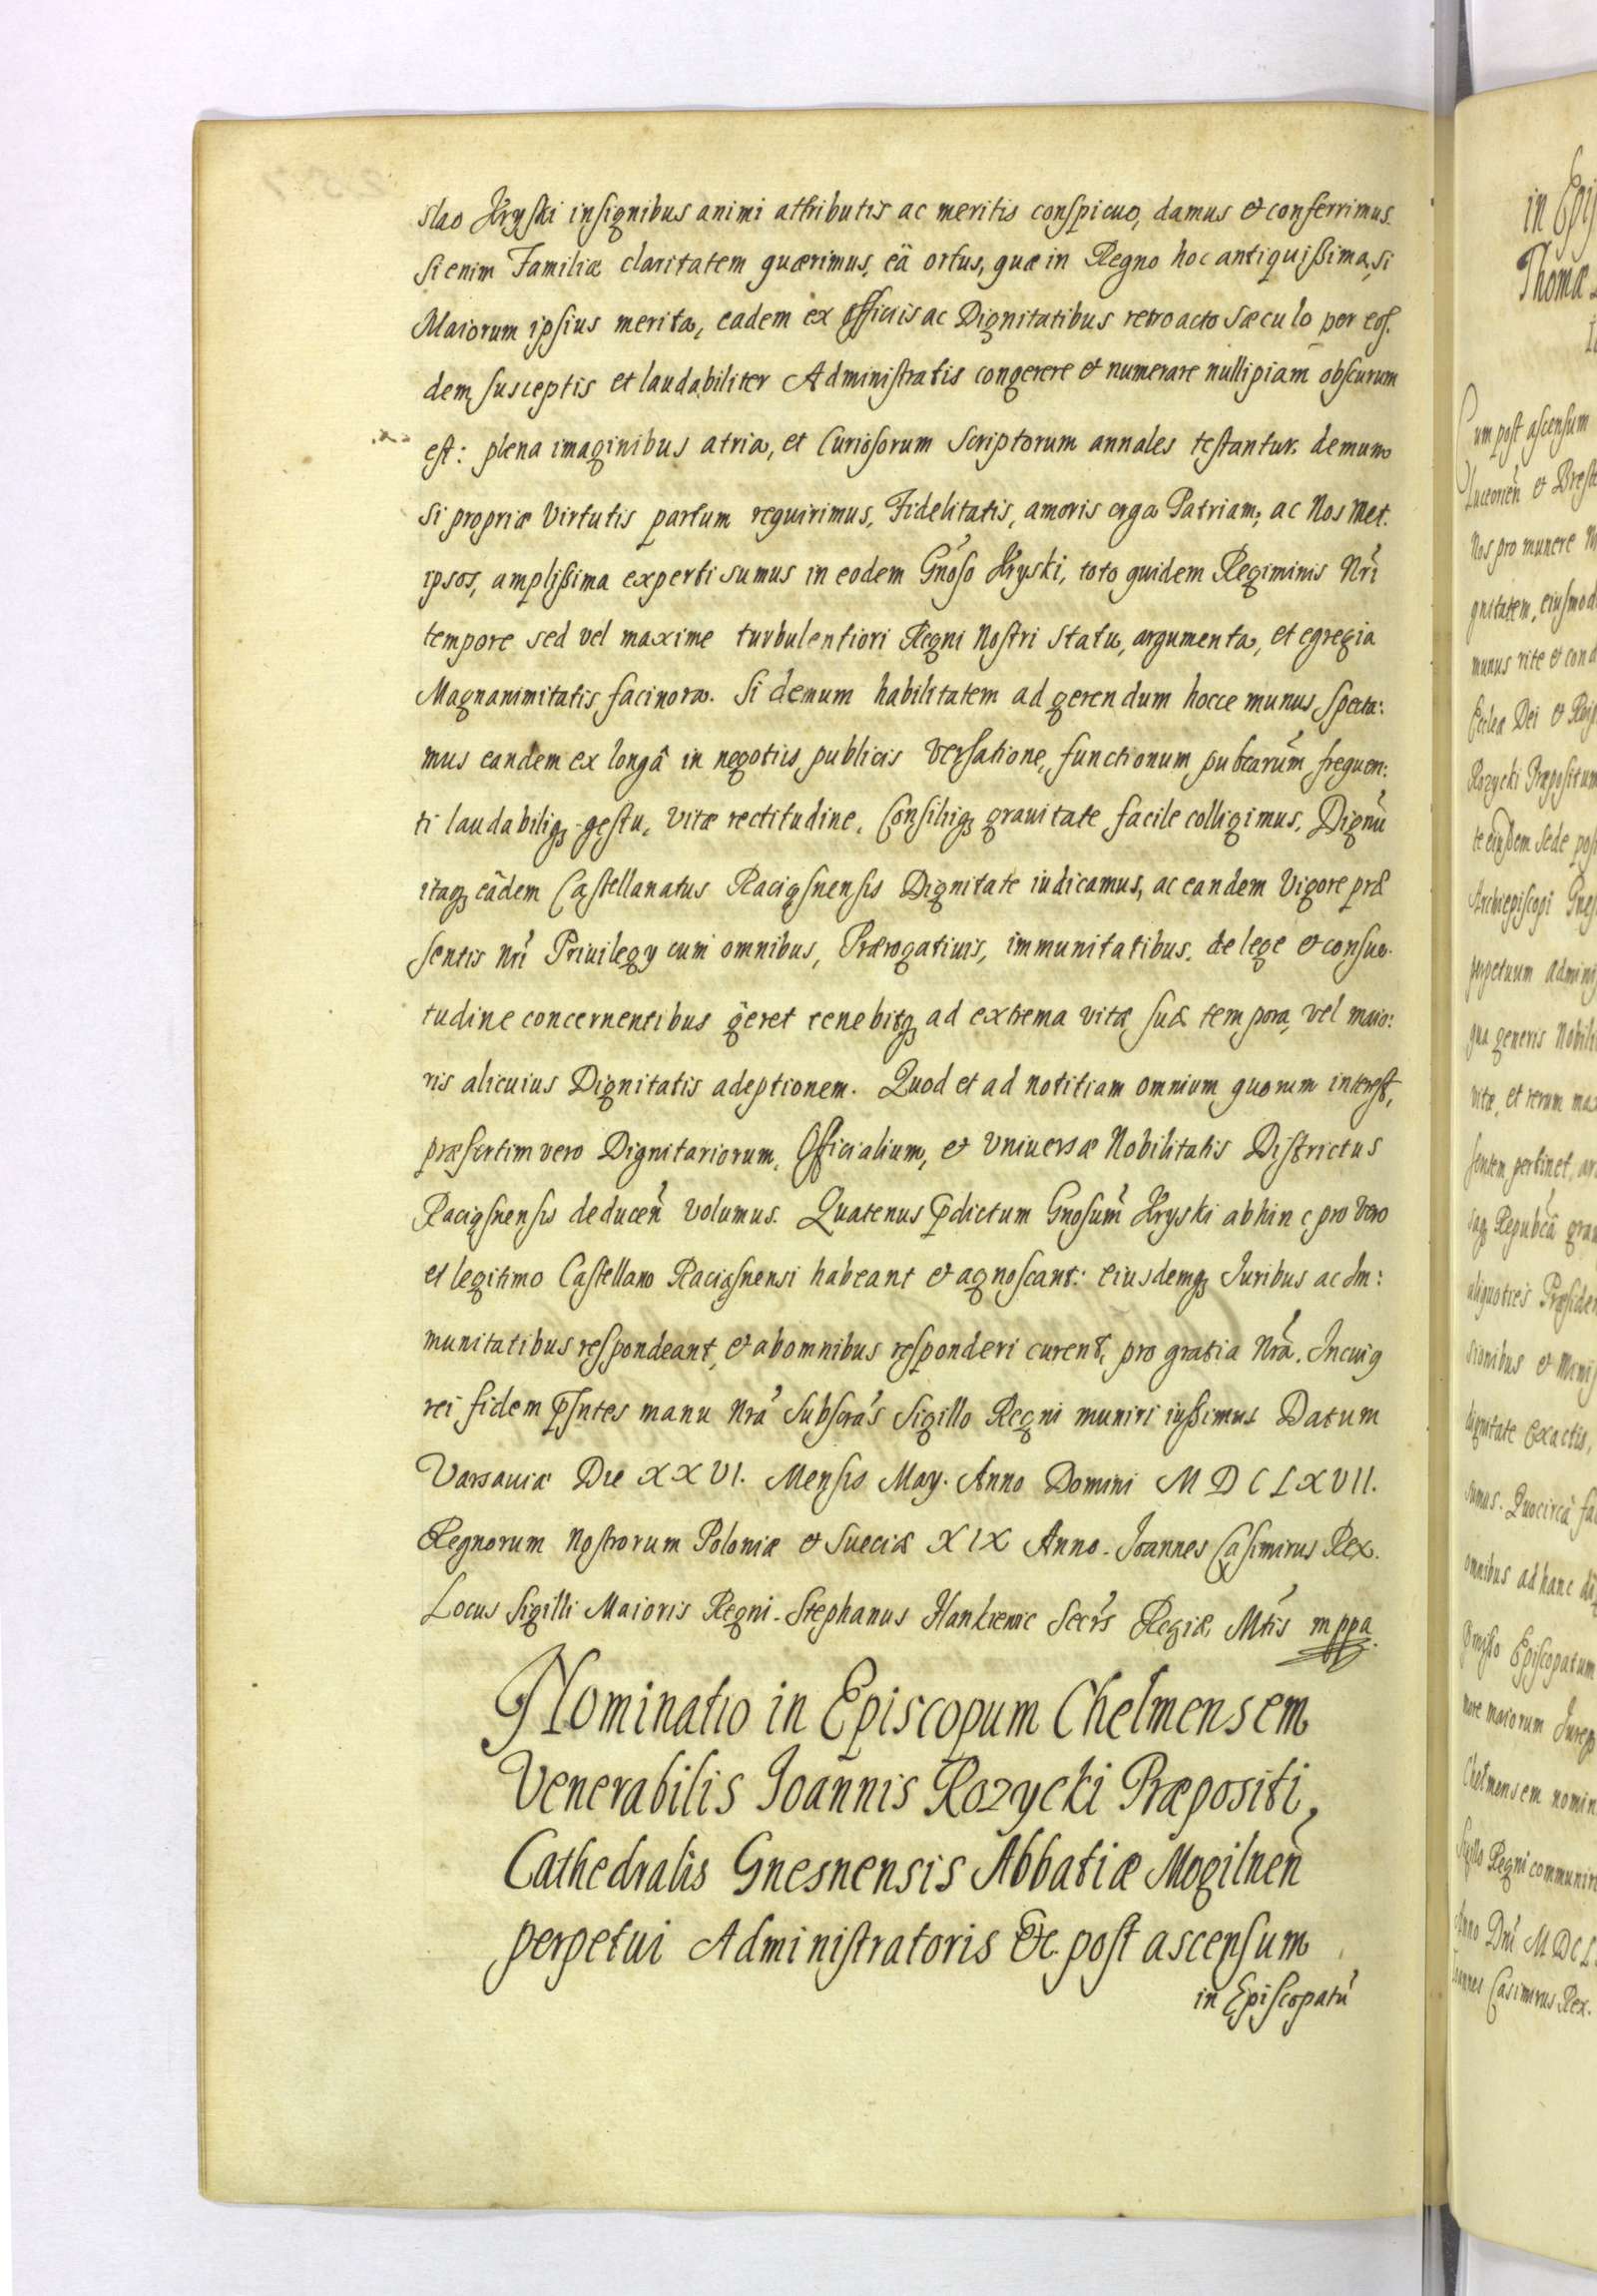 slao Kryski insignibus animi attributis ac meritis conspicuo, damus et conferrimus.
Si enim Familiæ claritatem quærimus, eâ ortus, quæ in Regno hoc antiquissima, si
Maiorum ipsius merita, eadem ex Officiis ac Dignitatibus retroacto sæculo per eos.
dem susceptis et laudabiliter Administratis congerere et numerare nulli piam obscurum
est: plena imaginibus atria, et Curiosorum Scriptorum annales testantur. demum
si propriæ Virtutis partum requirimus, Fidelitatis, amoris erga Patriam, ac Nos met.
ipsos, amplissima experti sumus in eodem Gnoso Kryski, toto quidem Regiminis Nri
tempore sed vel maxime turbulentiori Regni Nostri statu, argumenta, et egregia
Magnanimitatis facinora. Si demum habilitatem ad gerendum hocce munus specta:
mus eandem ex longâ in negotiis publicis Versatione, functionum pubcarum frequen:
ti laudabiliq gestu, Vitæ rectitudine, Consiliiq grauitate facile colligimus. Dignu
itaq eâdem Castellanatus Raciąsnensis Dignitate iudicamus, ac eandem Vigore præ
sentis Nri Priuilegy cum omnibus, Prærogatiuis, immunitatibus, de lege et consue.
tudine concernentibus geret tenebitq ad extrema vitæ suæ tempora, vel maio:
ris alicuius Dignitatis adeptionem. Quod et ad notitiam omnium quorum interest,
præsertim vero Dignitariorum, Officialium, et Vniuersæ Nobilitatis Districtus
Raciąsnensis deducen volumus. Quatenus pdictum Gnosum Kryski abhinc pro Vero
et legitimo Castellano Raciąsnensi habeant et agnoscant: eiusdemq Juribus ac Im:
munitatibus respondeant, et ab omnibus responderi curent, pro gratia Nra. In cuiq
rei fidem psntes manu Nra Subscras Sigillo Regni muniri iussimus Datum
Varsauiæ Die XXVI. Mensis May. Anno Domini MDCLXVII.
Regnorum Nostrorum Poloniæ et Sueciæ XIX Anno. Joannes Casimirus Rex.
Locus Sigilli Maioris Regni. Stephanus Hankiewic Secrs Regiæ Mtis mppa.
Nominatio in Episcopum Chelmensem
Venerabilis Joannis Rozycki Præpositi,
Cathedralis Gnesnensis Abbatiæ Mogilnen
perpetui Administratoris &c. post ascensum
in Episcopatu
in Epis
Thomæ
Cum post ascensum
Luceorien et Brest
Nos pro munere
gnitatem, eiusmod
munus rite et cond
Eccleæ Dei et Reip
Rozycki Præpositum
te eiusdem Sede pos
Archiepiscopi Gnes
perpetuum admini
qua generis Nobili
vitæ, et rerum max
sentem pertinet, ar
saq Repubca grau
aliquoties Præsiden
sionibus et
dignitate exactis,
sumus. Quocirca fa
omnibus ad hanc di
Episcopatum
more maiorum Jureq
Chelmensem nomin
Sigillo Regni communiri
Anno Dni MDCL
Joannes Casimirus Rex.